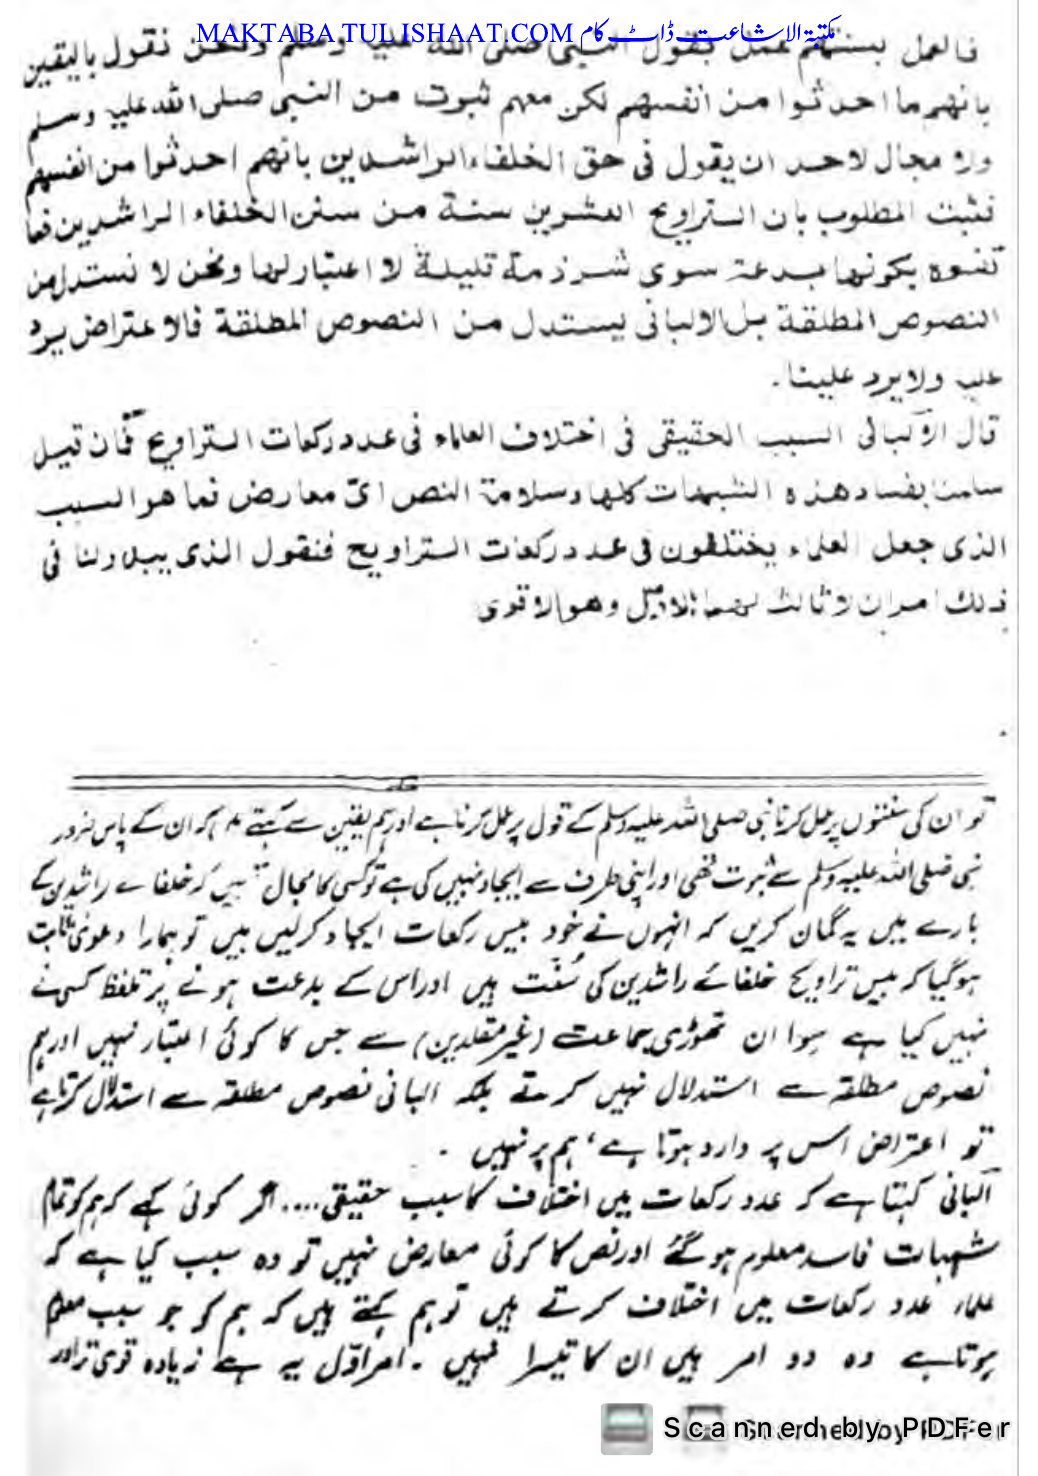 MAKTABA TUL ISHAAT.COM مکتبۃ الاشاعت ڈاٹ کام
فالعمل بسنتهم عمل بقول النبی صلی اللہ علیہ وسلم ونحن نقول بالیقین
بانهم ما احدثوا من انفسهم لکن معهم ثبوت من النبی صلی اللہ علیہ وسلم
ولا مجال لاحد ان یقول فی حق الخلفاء الراشدین بانهم احدثوا من انفسهم
فثبت المطلوب بان التراویح العشرین سنة من سنن الخلفاء الراشدین فما
تفوه بکونها بدعة سوی شرذمة قلیلة لا اعتبار لها ونحن لا نستدل من
النصوص المطلقة بل الالبانی یستدل من النصوص المطلقة فالاعتراض یرد
علیہ ولا یرد علینا۔
قال الألبانی السبب الحقیقی فی اختلاف العلماء فی عدد رکعات التراویح فان قیل
سلمنا بفساد هذه الشبهات کلها وسلامة النص ای معارض فما هو السبب
الذی جعل العلماء یختلفون فی عدد رکعات التراویح فنقول الذی یبدو لنا فی
ذلك امران لا ثالث لهما الاول وهو الاقوی
تو ان کی سنتوں پر عمل کرنا نبی صلی اللہ علیہ وسلم کے قول پر عمل کرنا ہے اور ہم یقین سے کہتے ہیں کہ ان کے پاس ضرور
نبی صلی اللہ علیہ وسلم سے ثبوت تھی اور اپنی طرف سے ایجاد نہیں کی ہے تو کسی کا مجال نہیں کہ خلفائے راشدین کے
بارے میں یہ گمان کریں کہ انہوں نے خود بیس رکعات ایجاد کرلیں ہیں تو ہمارا دعویٰ ثابت
ہوگیا کہ بیس تراویح خلفائے راشدین کی سُنّت ہیں اور اس کے بدعت ہونے پر تلفظ کسی نے
نہیں کیا ہے سوا ان تھوڑی جماعت (غیر مقلدین) سے جس کا کوئی اعتبار نہیں اور ہم
نصوص مطلقہ سے استدلال نہیں کرتے بلکہ البانی نصوص مطلقہ سے استدلال کرتا ہے
تو اعتراض اس پر وارد ہوتا ہے، ہم پر نہیں۔
البانی کہتا ہے کہ عدد رکعات میں اختلاف کا سبب حقیقی.... اگر کوئی کہے کہ ہم کو تمام
شبہات فاسد معلوم ہوگئے اور نص کا کوئی معارض نہیں تو وہ سبب کیا ہے کہ
علماء عدد رکعات میں اختلاف کرتے ہیں تو ہم کہتے ہیں کہ ہم کو جو سبب معلوم
ہوتا ہے وہ دو امر ہیں ان کا تیسرا نہیں۔ امر اوّل یہ ہے زیادہ قوی تر اور
Scanned by PDFer